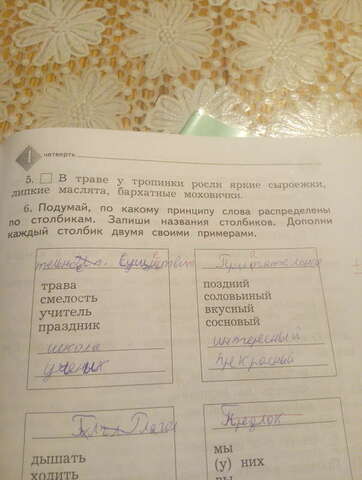 1 четверть
5. В траве у тропинки росли яркие сыроежки,
липкие маслята, бархатные моховички.
6. Подумай, по какому принципу слова распределены
по столбикам. Запиши названия столбиков. Дополни
каждый столбик двумя своими примерами.
трава
смелость
учитель
праздник
школа
ученик
поздний
соловьиный
вкусный
сосновый
интересный
прекрасный
дышать
ходить
Предлог
мы
(у) них
вы